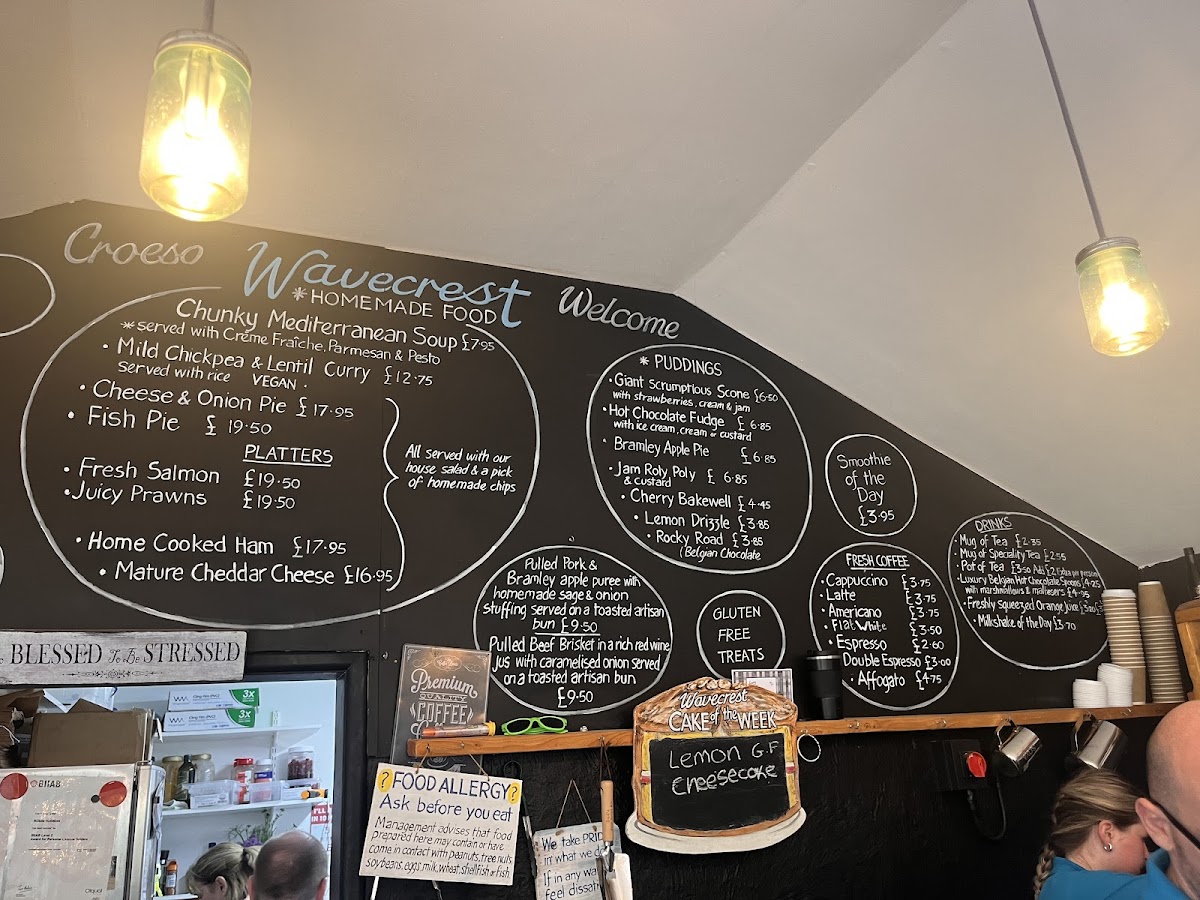 Croeso
Wavecrest
Welcome
*HOMEMADE FOOD
Chunky Mediterranean Soup £7.95
*served with Crème Fraîche, Parmesan & Pesto
• Mild Chickpea & Lentil Curry £12.75
served with rice VEGAN •
• Cheese & Onion Pie £17.95
• Fish Pie £19.50
PLATTERS
• Fresh Salmon £19.50
• Juicy Prawns £19.50
All served with our
house salad & a pick
of homemade chips
• Home Cooked Ham £17.95
• Mature Cheddar Cheese £16.95
* PUDDINGS
• Giant Scrumptious Scone £6.50
with strawberries, cream & jam
• Hot Chocolate Fudge £6.85
with ice cream, cream or custard
• Bramley Apple Pie £6.85
• Jam Roly Poly £6.85
& custard
• Cherry Bakewell £4.45
• Lemon Drizzle £3.85
• Rocky Road £3.85
(Belgian Chocolate
Pulled Pork &
Bramley apple puree with
homemade sage & onion
stuffing served on a toasted artisan
bun £9.50
Pulled Beef Brisket in a rich red wine
jus with caramelised onion served
on a toasted artisan bun
£9.50
GLUTEN
FREE
TREATS
Smoothie
of the
Day
£3.95
FRESH COFFEE
• Cappuccino £3.75
• Latte £3.75
• Americano £3.75
• Flat White £3.50
• Espresso £2.60
• Double Espresso £3.00
• Affogato £4.75
DRINKS
• Mug of Tea £2.35
• Mug of Speciality Tea £2.55
• Pot of Tea £3.50 Add £2 Extra per person
• Luxury Belgian Hot Chocolate Spoons £4.25
with marshmallows & maltesers £4.95
• Freshly Squeezed Orange Juice
• Milkshake of the Day £3.70
BLESSED To Be STRESSED
Premium
QUALITY
COFFEE
Wavecrest
CAKE of the WEEK
Lemon G.F
Cheesecake
? FOOD ALLERGY ?
Ask before you eat
Management advises that food
prepared here may contain or have
come in contact with peanuts, tree nuts
soybeans, eggs, milk, wheat, shellfish or fish.
We take PRID
in what we do
If in any wa
feel dissati
3x
3x
BIIAB